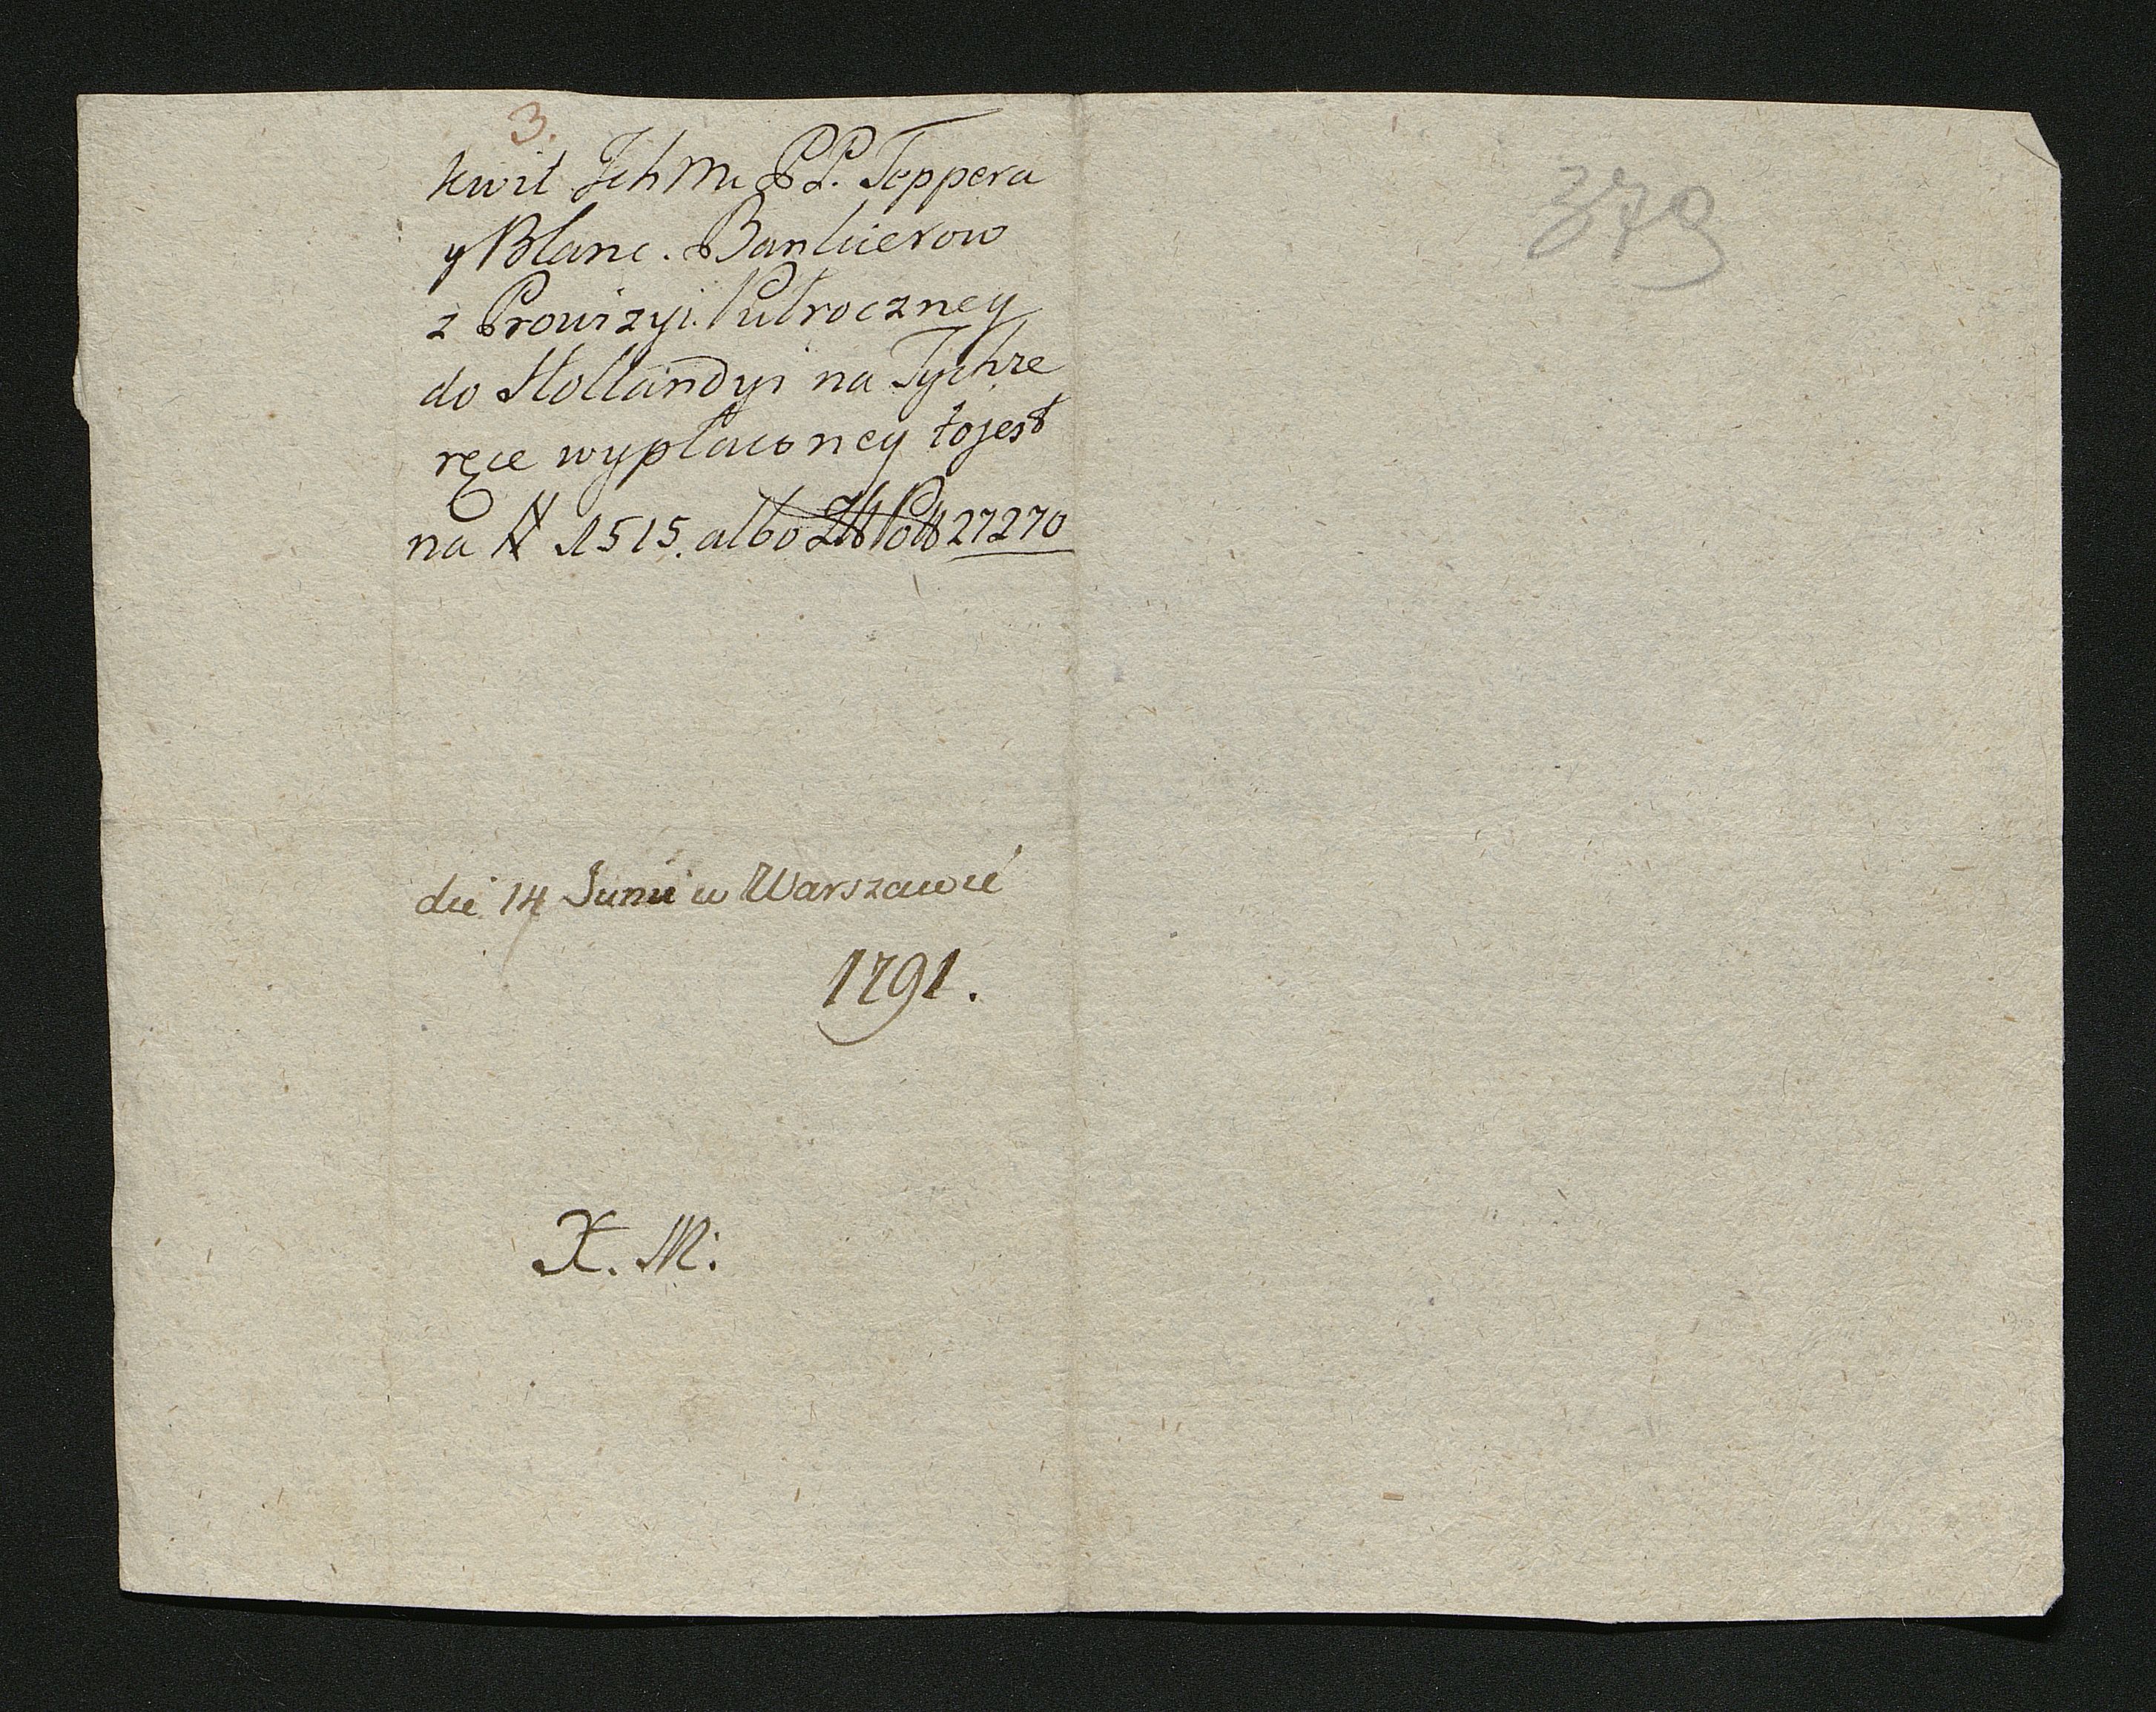 3.
kwit Ich Mc PP. Teppera
y Blanc. Bankierow
z Prowizyi Pułroczney
do Hollandyi na Tychże
ręce wypłaconey to jest
na # 1515. albo Zł Pol 27270
die 14 Junii w Warszawie
1791.
X. M:
379